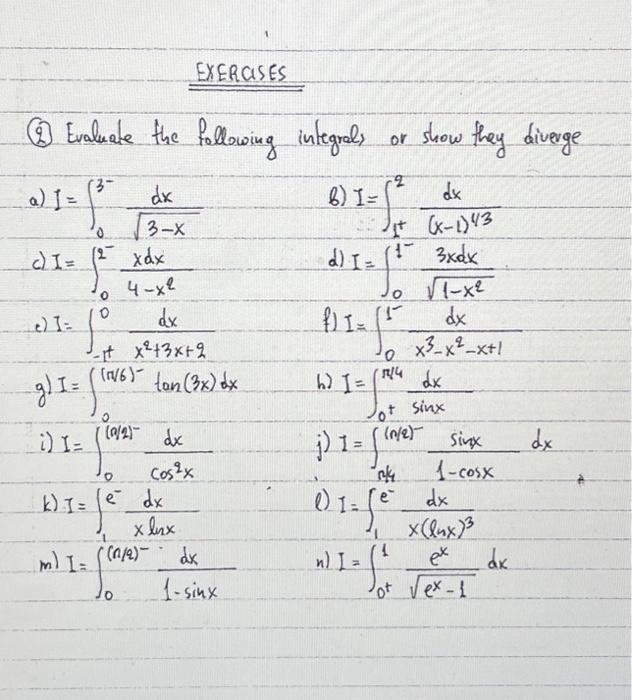 EXERCISES
② Evaluate the following integrals or show they diverge
a) I = ∫₀^{3⁻} dx / √(3-x)    b) I = ∫_{1⁺}^{2} dx / (x-1)^{4/3}
c) I = ∫₀^{2⁻} xdx / (4-x²)    d) I = ∫₀^{1⁻} 3xdx / √(1-x²)
e) I = ∫_{-1⁺}^{0} dx / (x²+3x+2)    f) I = ∫₀^{1⁻} dx / (x³-x²-x+1)
g) I = ∫₀^{(π/6)⁻} tan(3x)dx    h) I = ∫_{0⁺}^{π/4} dx / sinx
i) I = ∫₀^{(π/2)⁻} dx / cos²x    j) I = ∫_{π/4}^{(π/2)⁻} sinx / (1-cosx) dx
k) I = ∫₁^{e⁻} dx / (x lnx)    l) I = ∫₁^{e⁻} dx / (x(lnx)³)
m) I = ∫₀^{(π/2)⁻} dx / (1-sinx)    n) I = ∫_{0⁺}^{1} eˣ / √(eˣ-1) dx